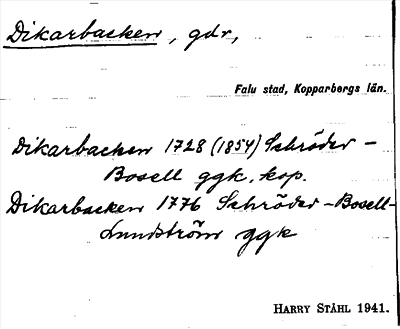 Dikarbacken, gdr,
Falu stad, Kopparbergs län.
Dikarbacken 1728 (1854) Schröder -
Bosell ggk, kop.
Dikarbacken 1776 Schröder - Bosell -
Lundström ggk
HARRY STÅHL 1941.